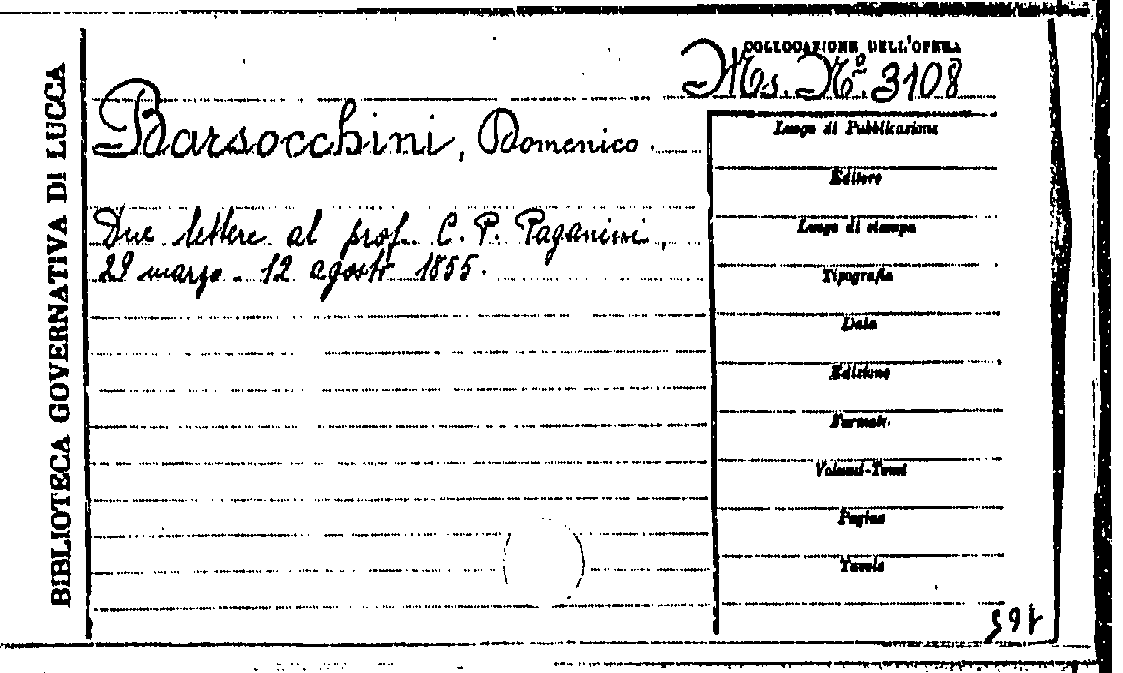 BIBLIOTECA GOVERNATIVA DI LUCCA
COLLOCAZIONE DELL'OPERA
Ms. Nº. 3108
Barsocchini, Domenico.
Due lettere al prof. C. P. Paganini,
29 marzo - 12 agosto 1855.
Luogo di Pubblicazione
Editore
Luogo di stampa
Tipografia
Data
Edizione
Formato
Volumi-Tomi
Pagine
Tavole